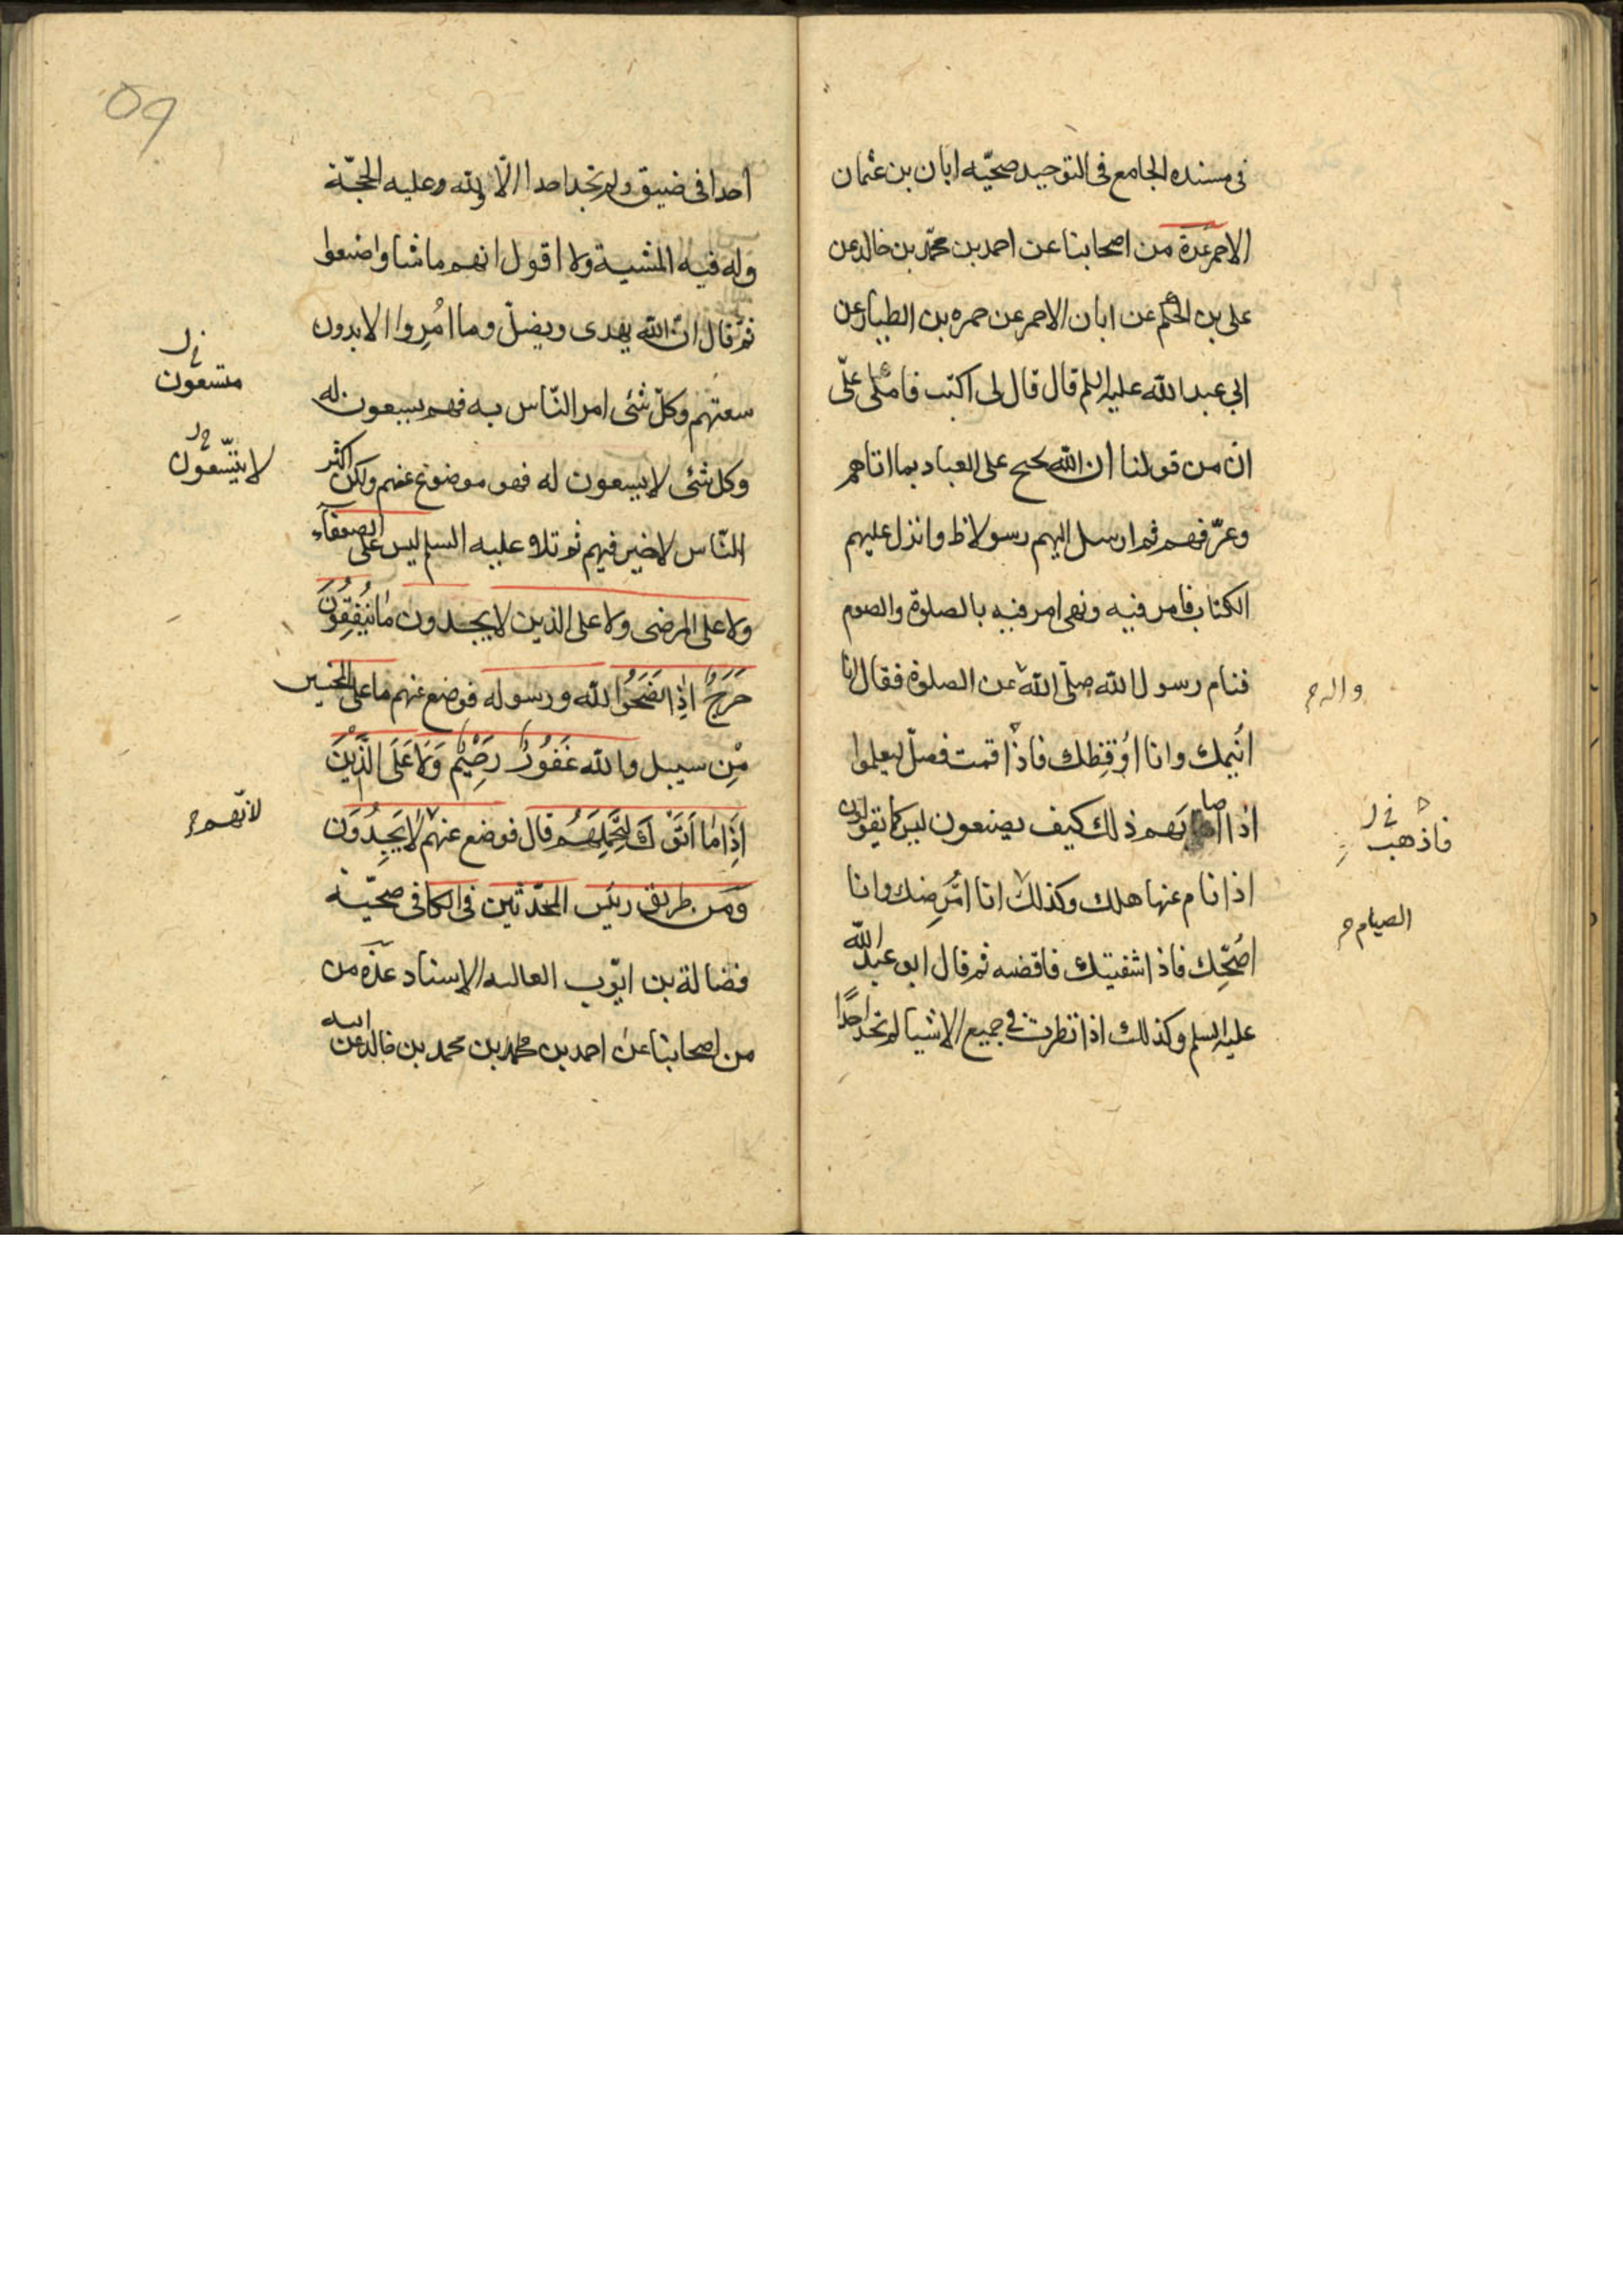 فى مسنده الجامع فى التوحيد صحيّه ابان بن عثمان
الاحمر عدة من اصحابنا عن احمد بن محمّد بن خالد عن
على بن الحكم عن ابان الاحمر عن حمزه بن الطيار عن
ابى عبد الله عليه السلم قال قال لى اكتب فاملى علىّ
ان من قولنا ان الله يحتج على العباد بما اتاهم
وعرّفهم ثم ارسل اليهم رسولا وانزل عليهم
الكتاب فامر فيه ونهى امر فيه بالصلوة والصوم
فنام رسول الله صلّى الله عن الصلوة فقال انا
واله ح
اُنيمك وانا اُوقظك فاذا قمت فصلّ ليعلموا
فاذهب
اذا اصابهم ذلك كيف يصنعون ليس كما يقولون
اذا نام عنها هلك وكذلك انا اُمرضك وانا
الصيام ح
اُصحّك فاذا شفيتك فاقضه ثم قال ابو عبد الله
عليه السلم وكذلك اذا نظرت فى جميع الاشيا لم تجد احدًا
09
احدا فى ضيق ولم تجد احدا الّا ولله وعليه الحجّة
وله فيه المشية ولا اقول انهم ما شاوا ضعوا
ثم قال انّ الله يهدى ويضلّ وما اُمِروا الا بدون
متسعون
سعتهم وكلّ شئ امر النّاس به فهم يسعون له
لا يتّسعون
وكل شئ لا يسعون له فهو موضوع عنهم ولكن اكثر
النّاس لا خير فيهم ثم تلا عليه السلم ليس على الضعفآء
ولا على المرضى ولا على الذين لا يجدون مَا يُنْفِقُونَ
حَرَجٌ اِذا نَصَحُوا لله ورسوله فوضع عنهم ما على المحسنين
مِنْ سبيل والله غَفُورٌ رَحِيْمٌ وَلَا عَلَى الَّذِيْنَ
اِذَا مَا اَتَوْكَ لِتَحْمِلَهُم قال فوضع عنهم لَا يَجِدُونَ
لانّهم ح
ومن طريق رئيس المحدّثين فى الكافى صحّية
فضالة بن ايّوب العاليه الاسناد عدّة من
من اصحابنا عن احمد بن محمد بن محمد بن خالد عن ابيه